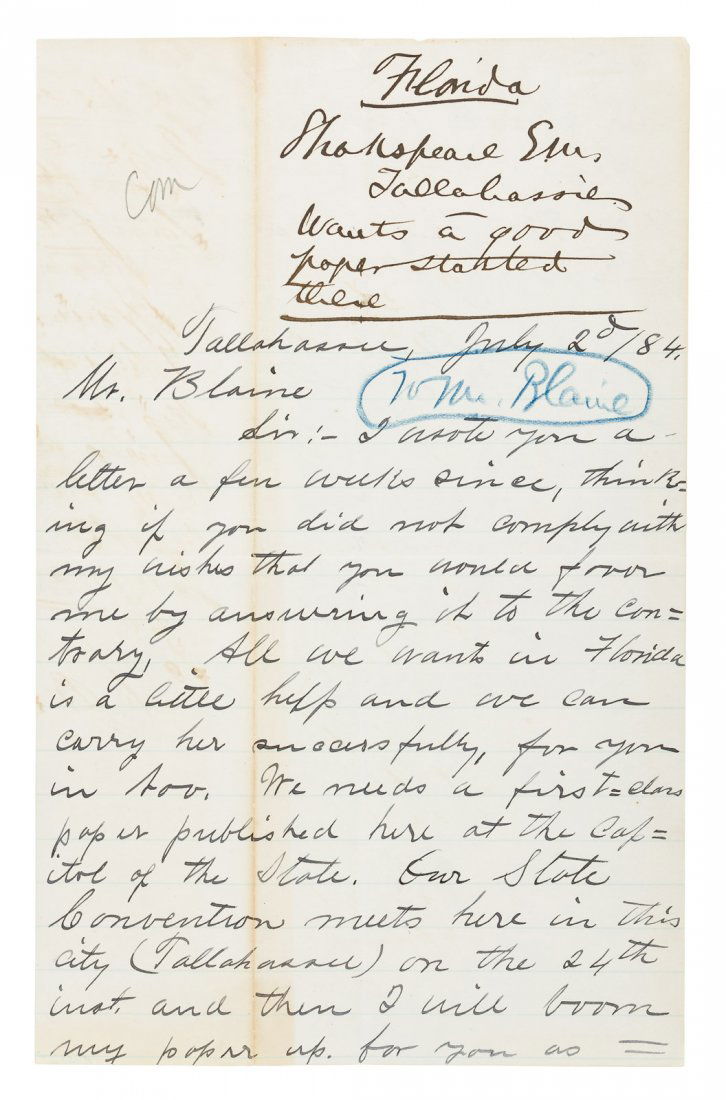 Florida
Shakspeare E.M.
Tallahassie
Wants a good
paper started
there
Com
Tallahassee, July 2d/84.
Mr. Blaine
To Mr. Blaine
Sir:- I wrote you a
letter a few weeks since, think=
ing if you did not comply with
my wishes that you would favor
me by answering it to the con=
trary, All we wants in Florida
is a little help and we can
carry her successfully, for you
in too. We needs a first=class
paper published here at the Cap=
itol of the State. Our State
Convention meets here in this
city (Tallahassee) on the 24th
inst. and then I will boom
my paper up. for you as =